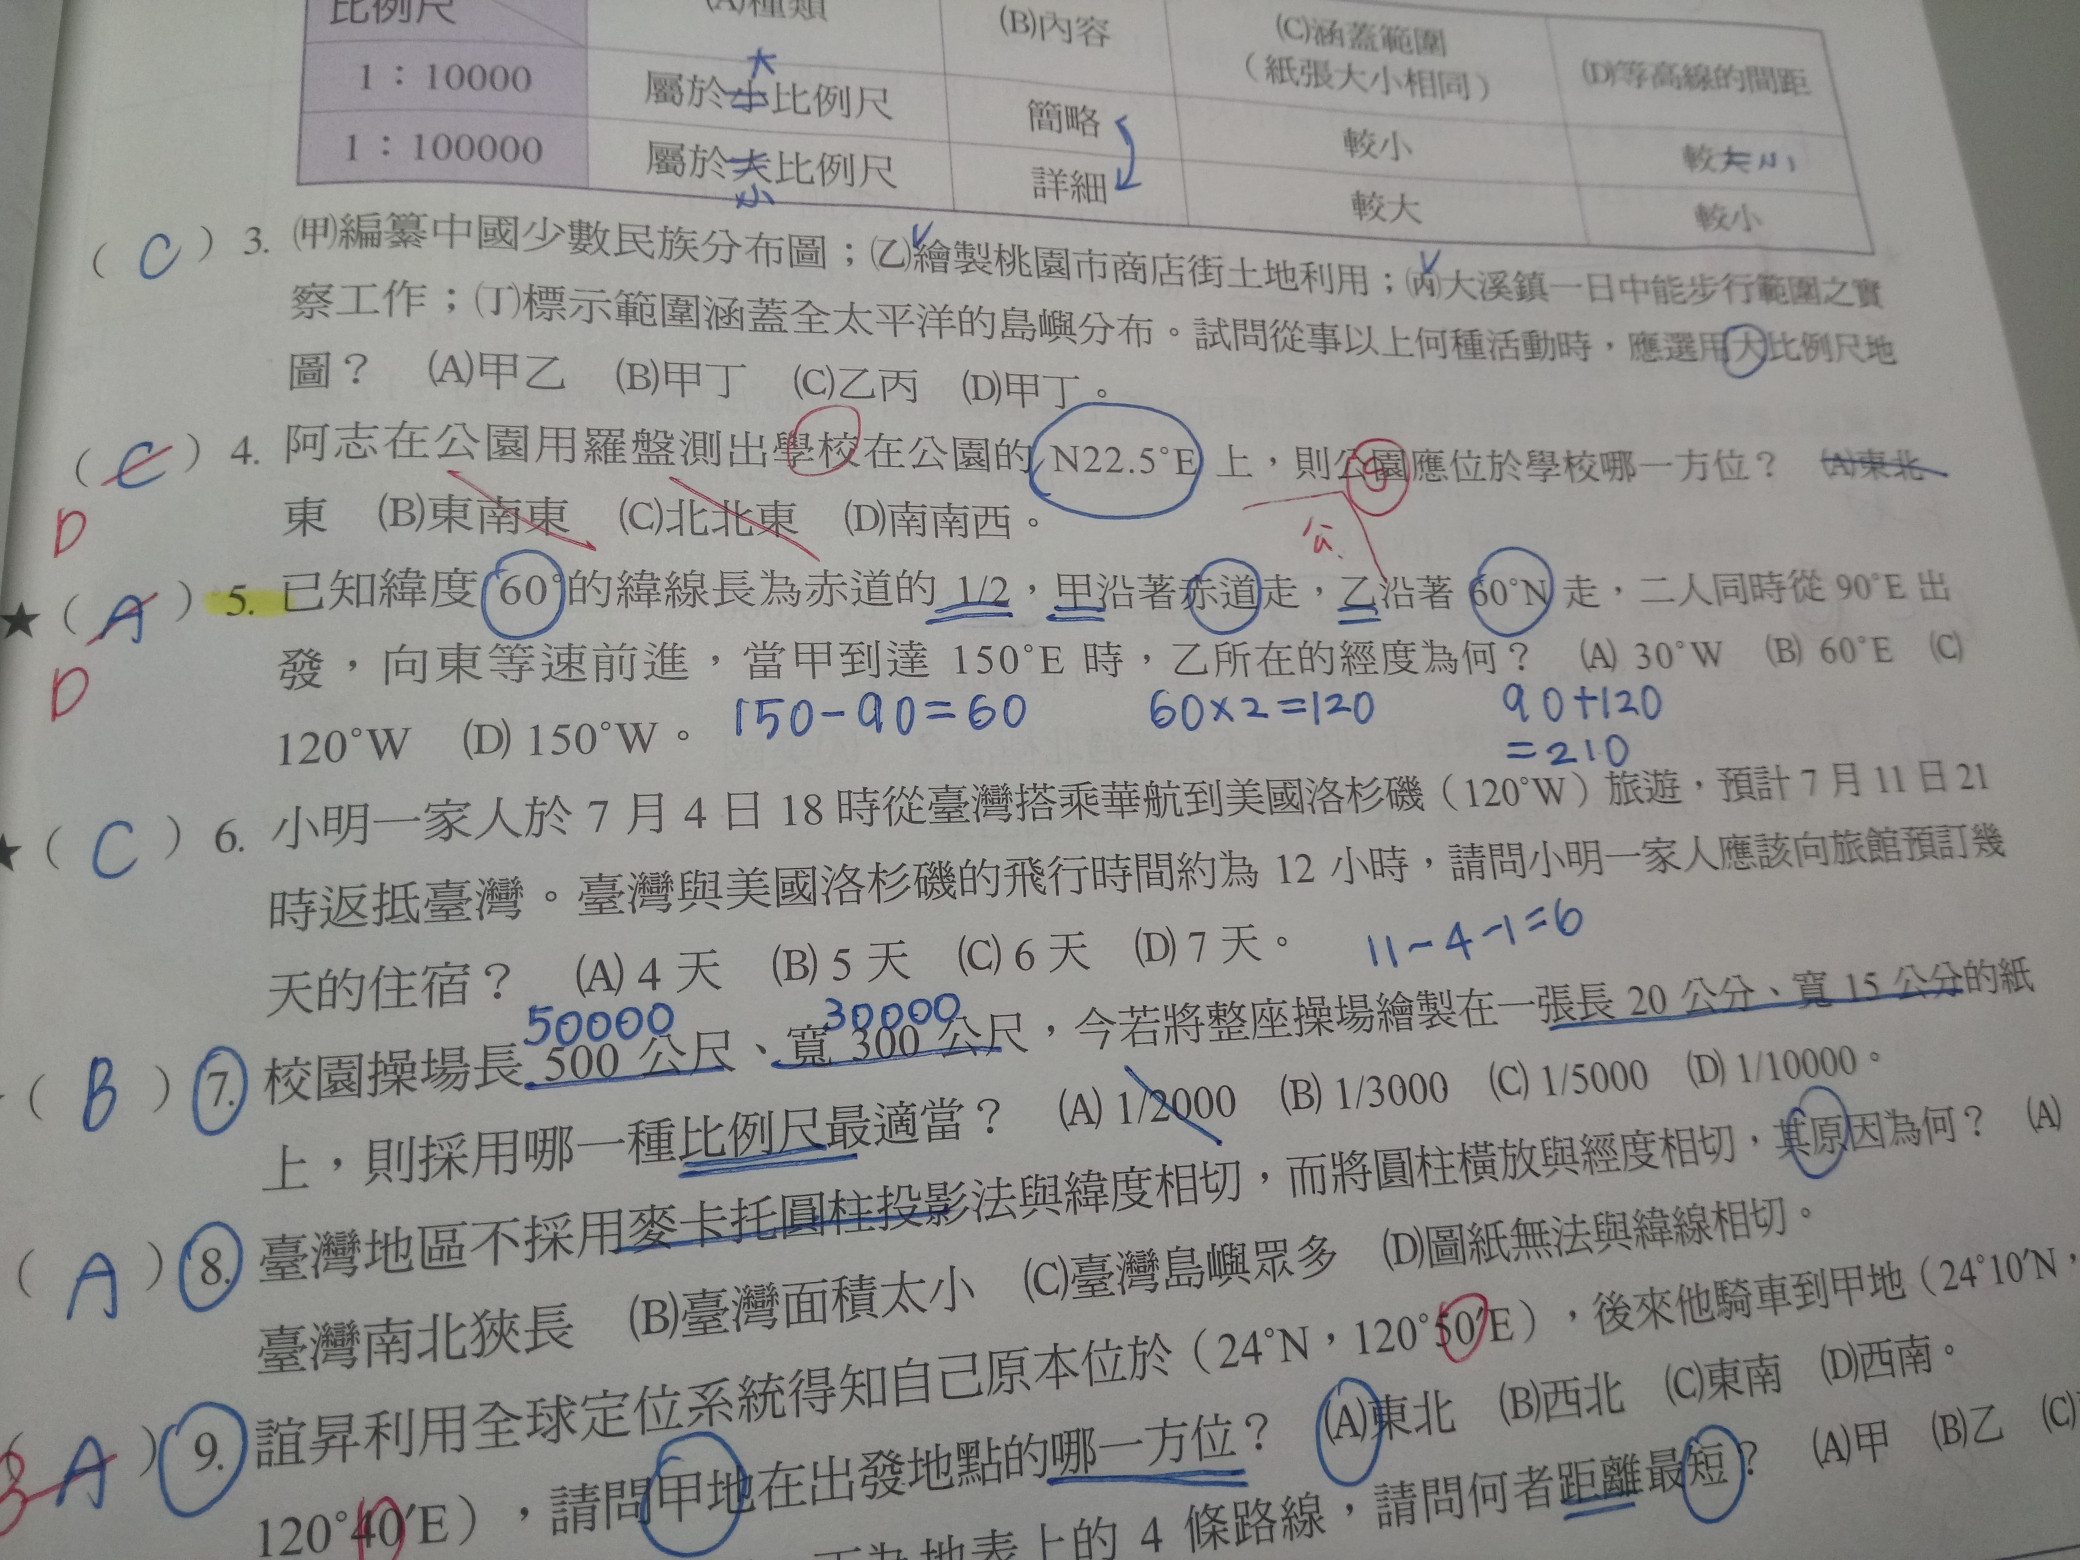 比例尺 (A)種類 (B)內容 (C)涵蓋範圍（紙張大小相同） (D)等高線的間距
大
1：10000 屬於小比例尺 簡略 較小 較大小
1：100000 屬於大比例尺 詳細 較大 較小
小
( C ) 3. (甲)編纂中國少數民族分布圖；(乙)繪製桃園市商店街土地利用；(丙)大溪鎮一日中能步行範圍之實
察工作；(丁)標示範圍涵蓋全太平洋的島嶼分布。試問從事以上何種活動時，應選用大比例尺地
圖？ (A)甲乙 (B)甲丁 (C)乙丙 (D)甲丁。
( C ) 4. 阿志在公園用羅盤測出學校在公園的 N22.5°E 上，則公園應位於學校哪一方位？ (A)東北
D 東 (B)東南東 (C)北北東 (D)南南西。
公
★( A ) 5. 已知緯度 60°的緯線長為赤道的 1/2，甲沿著赤道走，乙沿著 60°N 走，二人同時從 90°E 出
D 發，向東等速前進，當甲到達 150°E 時，乙所在的經度為何？ (A) 30°W (B) 60°E (C)
120°W (D) 150°W。 150-90=60 60×2=120 90+120
=210
★( C ) 6. 小明一家人於 7 月 4 日 18 時從臺灣搭乘華航到美國洛杉磯（120°W）旅遊，預計 7 月 11 日 21
時返抵臺灣。臺灣與美國洛杉磯的飛行時間約為 12 小時，請問小明一家人應該向旅館預訂幾
天的住宿？ (A) 4 天 (B) 5 天 (C) 6 天 (D) 7 天。 11-4-1=6
50000 30000
( B ) 7. 校園操場長 500 公尺、寬 300 公尺，今若將整座操場繪製在一張長 20 公分、寬 15 公分的紙
上，則採用哪一種比例尺最適當？ (A) 1/2000 (B) 1/3000 (C) 1/5000 (D) 1/10000。
( A ) 8. 臺灣地區不採用麥卡托圓柱投影法與緯度相切，而將圓柱橫放與經度相切，其原因為何？ (A)
臺灣南北狹長 (B)臺灣面積太小 (C)臺灣島嶼眾多 (D)圖紙無法與緯線相切。
( A ) 9. 誼昇利用全球定位系統得知自己原本位於（24°N，120°50′E），後來他騎車到甲地（24°10′N，
B 120°40′E），請問甲地在出發地點的哪一方位？ (A)東北 (B)西北 (C)東南 (D)西南。
地表上的 4 條路線，請問何者距離最短？ (A)甲 (B)乙 (C)